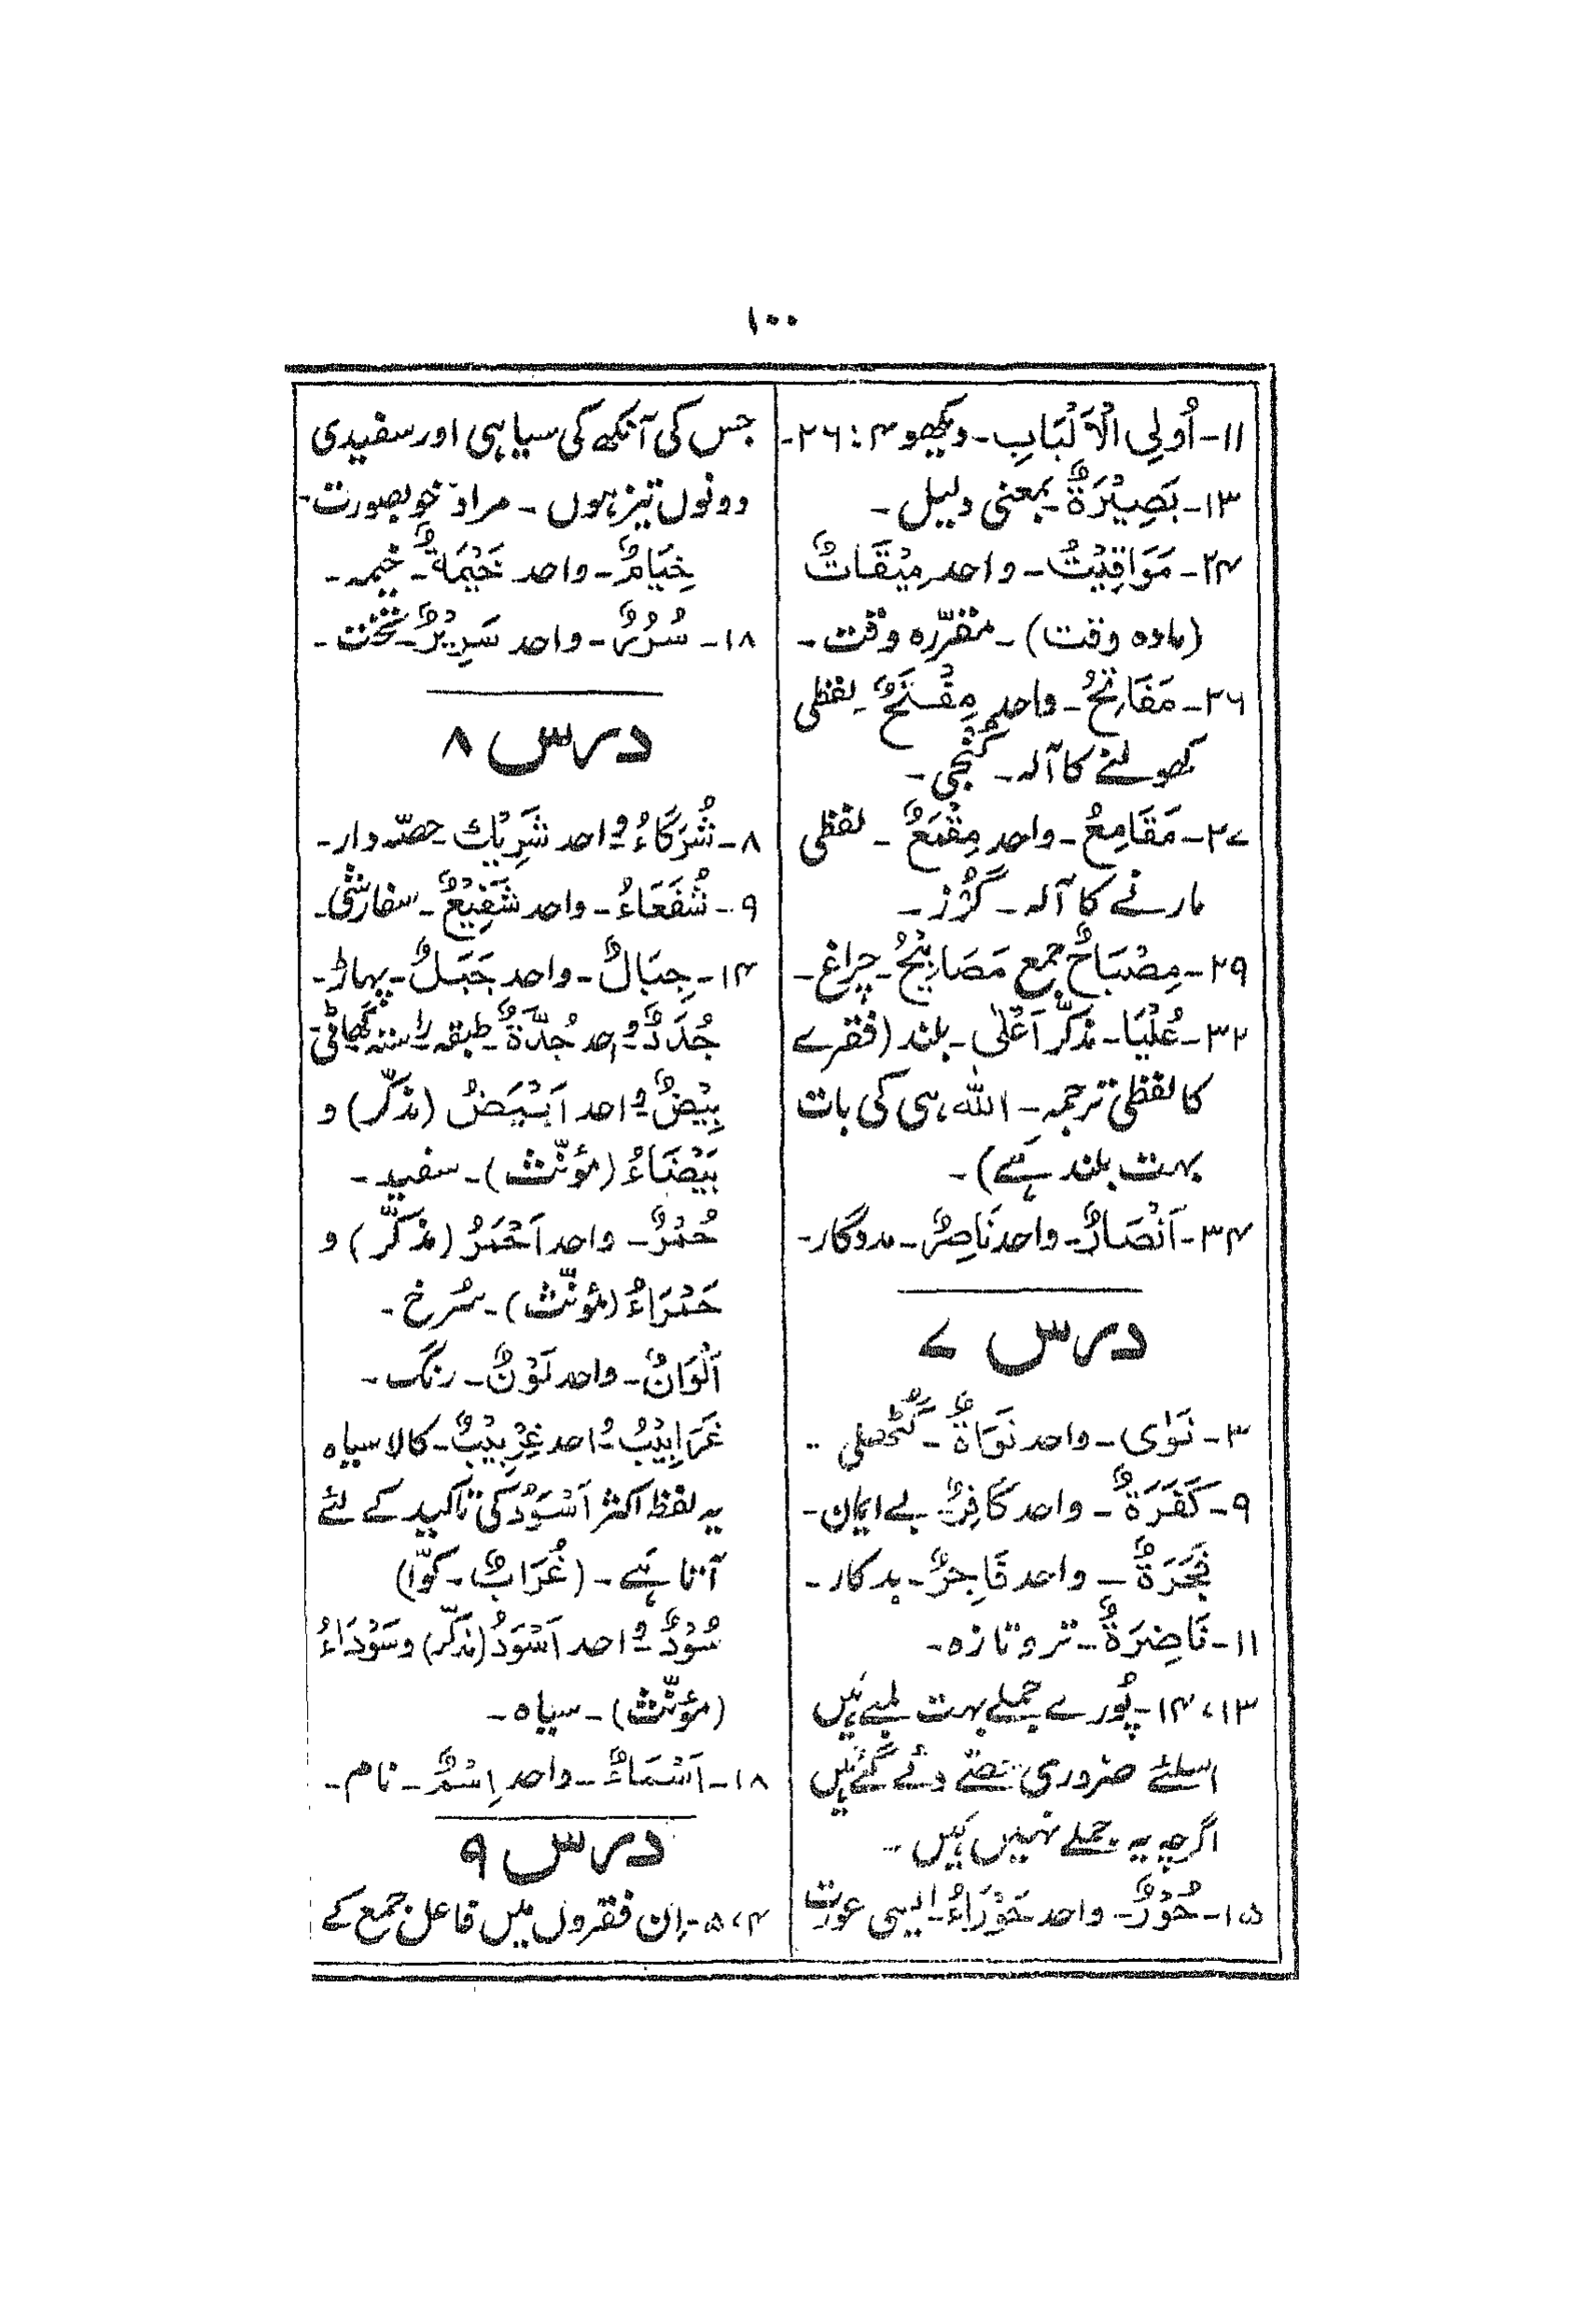 ۱۰۰
۱۱- اُولِی الْاَلْبَابِ - دیکھو ۴ : ۲۶-
۱۳- بَصِیْرَةٌ - بمعنی دلیل -
۲۴- مَوَاقِیْتُ - واحد مِیْقَاتٌ
(مادہ وقت) - مقرّرہ وقت -
۲۶- مَفَاتِحُ - واحد مِفْتَحٌ - لفظی
کھولنے کا آلہ - کُنْجی -
۲۷- مَقَامِعُ - واحد مِقْمَعٌ - لفظی
مارنے کا آلہ - گُرْز -
۲۹- مِصْبَاحٌ جمع مَصَابِیْحُ - چراغ -
۳۲- عُلْیَا - مذکّر اَعْلٰی - بلند (فقرے
کا لفظی ترجمہ - اللہ ہی کی بات
بہت بلند ہَے) -
۳۴- اَنْصَارٌ - واحد نَاصِرٌ - مددگار -
درس ۷
۳- نَوٰی - واحد نَوَاةٌ - گُٹھلی -
۹- کَفَرَةٌ - واحد کَافِرٌ - بے ایمان -
فَجَرَةٌ - واحد فَاجِرٌ - بدکار -
۱۱- نَاضِرَةٌ - تر و تازہ -
۱۳، ۱۴- پُورے جملے بہت لمبے ہَیں
اسلئے ضروری حصّے دئے گئے ہَیں
اگرچہ یہ جملے نہیں ہَیں -
۱۵- حُوْرٌ - واحد حَوْرَاءُ - ایسی عورت
جس کی آنکھ کی سیاہی اور سفیدی
دونوں تیز ہوں - مراد خوبصورت -
خِیَامٌ - واحد خَیْمَةٌ - خیمہ -
۱۸- سُرُرٌ - واحد سَرِیْرٌ - تخت -
درس ۸
۸- شُرَکَاءُ - واحد شَرِیْك - حصّہ دار -
۹- شُفَعَاءُ - واحد شَفِیْعٌ - سفارشی -
۱۴- جِبَالٌ - واحد جَبَلٌ - پہاڑ -
جُدَدٌ - واحد جُدَّةٌ - طبقہ راستہ گھاٹی -
بِیْضٌ - واحد اَبْیَضُ (مذکّر) و
بَیْضَاءُ (مؤنّث) - سفید -
حُمْرٌ - واحد اَحْمَرُ (مذکّر) و
حَمْرَاءُ (مؤنّث) - سُرخ -
اَلْوَانٌ - واحد لَوْنٌ - رنگ -
غَرَابِیْبُ - واحد غِرْبِیْبٌ - کالا سیاہ
یہ لفظ اکثر اَسْوَدُ کی تاکید کے لئے
آتا ہَے - (غُرَابٌ - کوّا)
سُوْدٌ - واحد اَسْوَدُ (مذکّر) و سَوْدَاءُ
(مؤنّث) - سیاہ -
۱۸- اَسْمَاءٌ - واحد اِسْمٌ - نام -
درس ۹
۴، ۵- اِن فقروں میں فاعل جمع کے